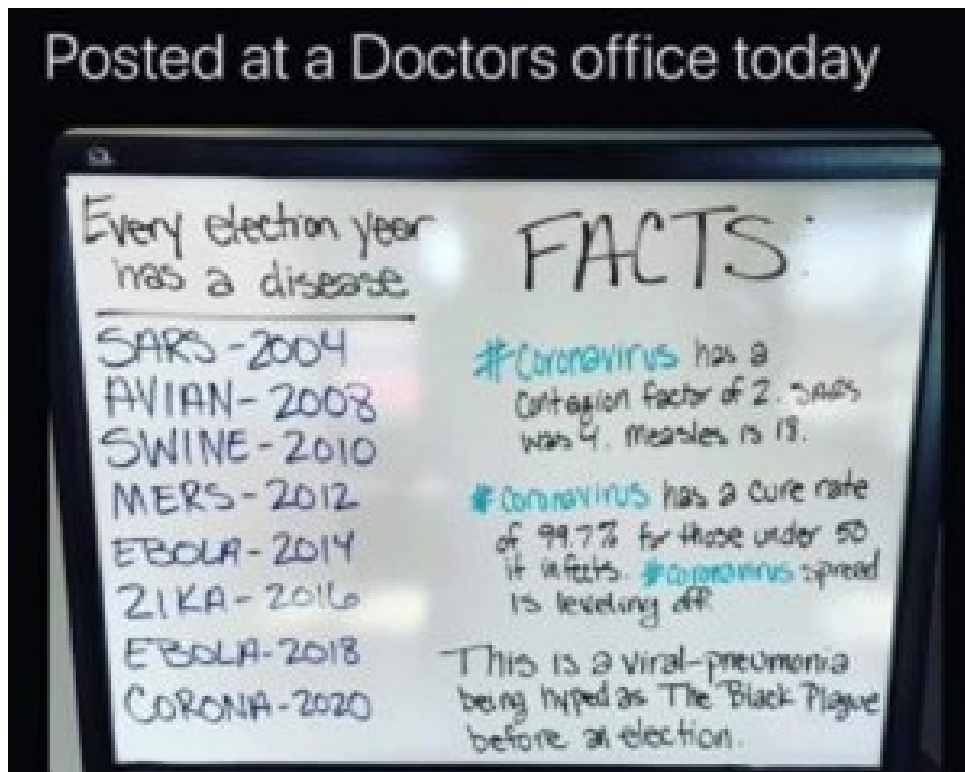 Posted at a Doctors office today
Every election year
has a disease
SARS - 2004
AVIAN - 2008
SWINE - 2010
MERS - 2012
EBOLA - 2014
ZIKA - 2016
EBOLA - 2018
CORONA - 2020
FACTS:
#Coronavirus has a
Contagion factor of 2. SARS
was 4. Measles is 18.
#Coronavirus has a cure rate
of 99.7% for those under 50
it infects. #Coronavirus spread
is leveling off.
This is a viral-pneumonia
being hyped as The Black Plague
before an election.